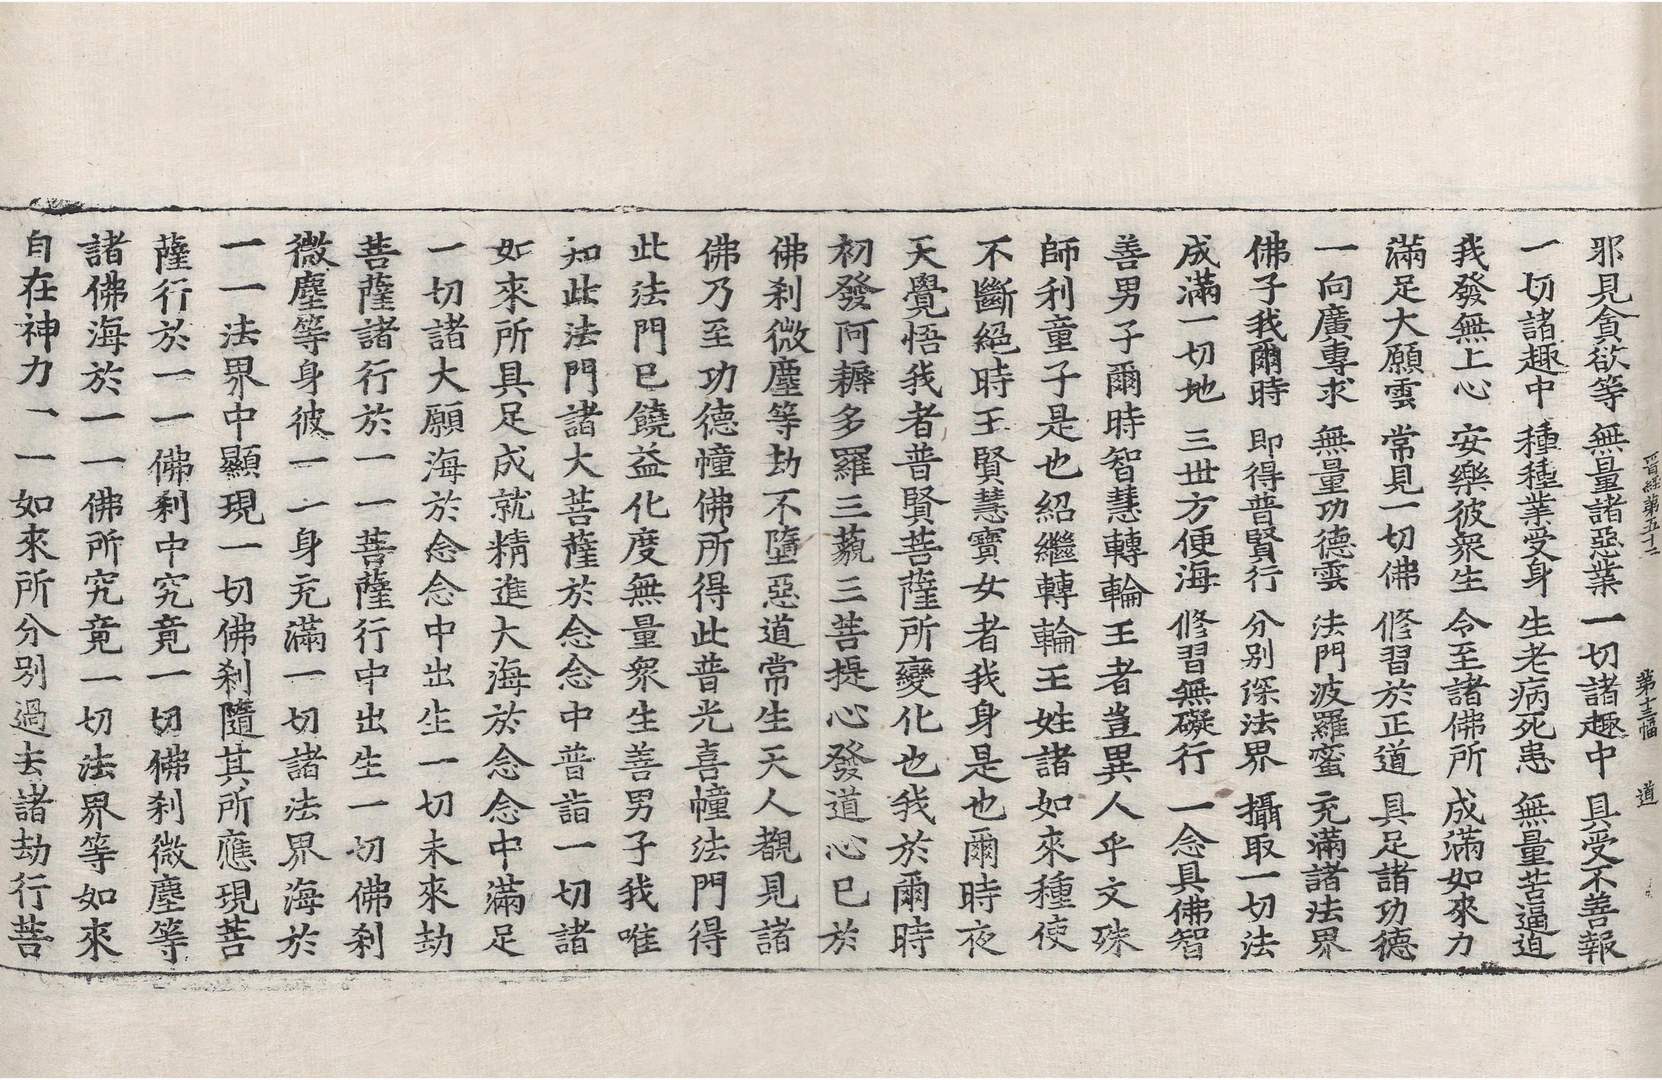 晋經第五十二　第十三幅　道
邪見貪欲等　無量諸惡業　一切諸趣中　具受不善報
一切諸趣中　種種業受身　生老病死患　無量苦逼迫
我發無上心　安樂彼衆生　令至諸佛所　成滿如來力
滿足大願雲　常見一切佛　修習於正道　具足諸功德
一向廣專求　無量功德雲　法門波羅蜜　充滿諸法界
佛子我爾時　即得普賢行　分別深法界　攝取一切法
成滿一切地　三世方便海　修習無礙行　一念具佛智
善男子爾時智慧轉輪王者豈異人乎文殊
師利童子是也紹繼轉輪王姓諸如來種使
不斷絕時王賢慧寶女者我身是也爾時夜
天覺悟我者普賢菩薩所變化也我於爾時
初發阿耨多羅三藐三菩提心發道心已於
佛刹微塵等劫不墮惡道常生天人覩見諸
佛乃至功德幢佛所得此普光喜幢法門得
此法門已饒益化度無量衆生善男子我唯
知此法門諸大菩薩於念念中普詣一切諸
如來所具足成就精進大海於念念中滿足
一切諸大願海於念念中出生一切未來劫
菩薩諸行於一一菩薩行中出生一切佛刹
微塵等身彼一一身充滿一切諸法界海於
一一法界中顯現一切佛刹隨其所應現菩
薩行於一一佛刹中究竟一切佛刹微塵等
諸佛海於一一佛所究竟一切法界等如來
自在神力一一如來所分別過去諸劫行菩